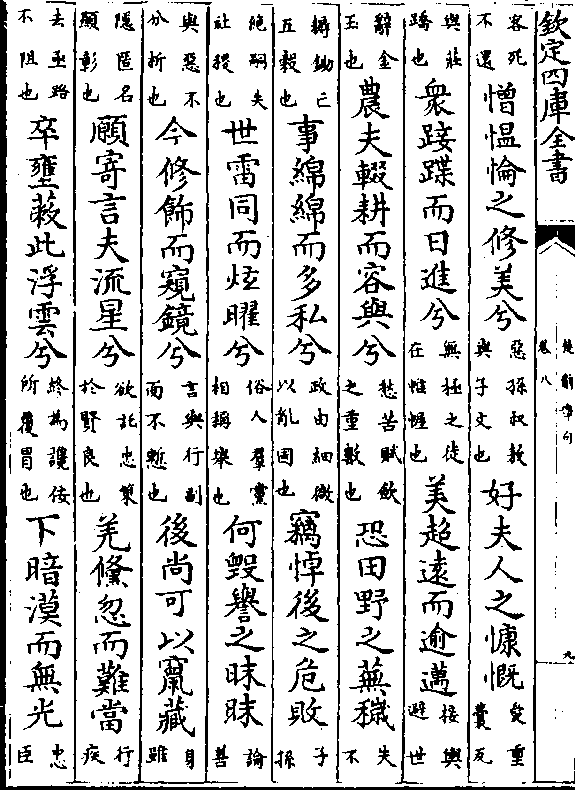 欽定四庫全書
楚辭章句
卷八
九
客死
不還
憎愠惀之修美兮
惡孫叔敖
與子文也
好夫人之慷慨
愛重
囊瓦
與莊
蹻也
衆踥蹀而日進兮
無極之徒
在帷幄也
美超遠而逾邁
接輿
避世
辭金
玉也
農夫輟耕而容與兮
愁苦賦斂
之重數也
恐田野之蕪穢
失
不
耨鋤亡
五穀也
事綿綿而多私兮
政由細微
以亂國也
竊悼後之危敗
子
孫
絶嗣失
社稷也
世雷同而炫曜兮
俗人羣黨
相稱舉也
何毀譽之昧昧
論
善
與惡不
分折也
今修飾而窺鏡兮
言與行副
面不慙也
後尚可以竄藏
身
雖
隱匿名
顯彰也
願寄言夫流星兮
欲託忠策
於賢良也
羌儵忽而難當
行
疾
去亟路
不阻也
卒壅蔽此浮雲兮
終為讒佞
所覆冒也
下暗漠而無光
忠
臣